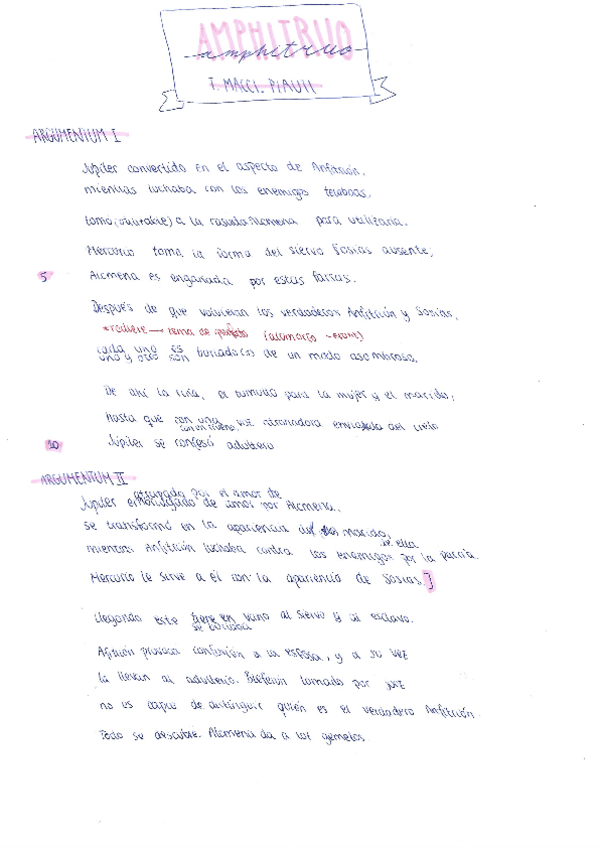 AMPHITRUO
amphitruo
T. MACCI. PLAUTI
ARGUMENTUM I
Júpiter convertido en el aspecto de Anfitrión,
mientras luchaba con los enemigos teleboas,
tomo (usurable) a la casada Alcmena para utilizarla.
Mercurio toma la forma del siervo Sosias ausente;
5 Alcmena es engañada por estas farsas.
Después de que volvieran los verdaderos Anfitrión y Sosias,
*rediere → tema de perfecto
cada uno es
uno y otro son burlados de un modo asombroso.
De ahí la riña, el tumulto para la mujer y el marido;
hasta que con una voz atronadora enviada del cielo
con un trueno
10 Júpiter se confesó adultero
ARGUMENTUM II
atrapado por el amor de
Júpiter embriagado de amor por Alcmena,
se transformó en la apariencia del marido,
de ella
mientras Anfitrión luchaba contra los enemigos por la patria.
Mercurio le sirve a él con la apariencia de Sosias.]
Llegando este tiene en vano al siervo y al esclavo.
se burlaba
Afitrión provoca confusión a la esposa, y a su vez
la llevan al adulterio. Blefarón tomado por juez
no es capaz de distinguir quién es el verdadero Anfitrión
Todo se descubre. Alcmena da a los gemelos